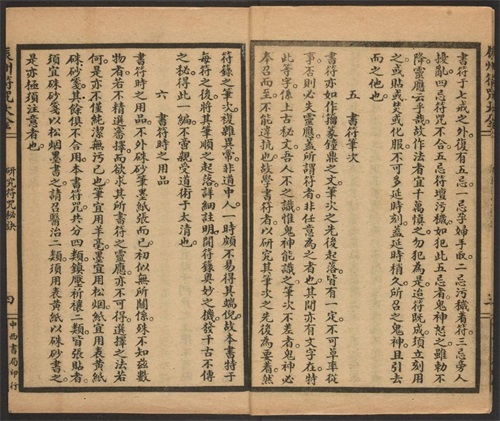 書符于七戒之外。復有五忌。一忌孕婦手取。二忌污穢看符。三忌帶不
擾亂。四忌符咒不合。五忌符壇污穢。如犯此五忌者。鬼神怒之。雖勅不
降。靈應云乎哉。故作法者宜千萬慎之。勿犯為是。迨符既成。須立刻用
之。或貼或焚或化服。不可多延時刻。蓋延時稍久。所召之鬼神且引去
而之他也。
五 書符筆次
書符亦如作擂篆鐘鼎之文。筆次之先後起落。皆有一定。不可草率從
事。否則必失靈應。蓋所謂符者。非任意為之者也。其間亦有文字在。特
此等字係上古秘文。吾人不之識。惟鬼神能識之。筆次不差者。鬼神必
奉召而至。不能有違抗也。故學書符者。以研究其筆次之先後為要着。然
符籙之筆次。複雜異常。非道中人。一時頗不易得其端倪。故本書特于
每符之後。將其筆順之起落。詳細註明。闢符籙奧妙之機。發千古不傳
之秘。得此一編。不啻親受道術于太清也。
六 書符時之用品
書符時之用品。不外硃砂筆墨紙張而已。初似無所關係。殊不知茲數
物者。若不精選審擇。而欲求其所書符之靈應。亦不可得。選擇之法若
何。是亦不僅純潔無污已也。筆宜用羊毫。墨宜用松烟。紙宜用表黃紙。
硃砂箋。其餘俱不合用。本書符咒共分四類。鎮壓祈禳二類。皆張貼者。
須宜硃砂箋以松烟墨書之。請召醫治二類。須用表黃紙以硃砂書之。
是亦極須注意者也。
研究符咒秘訣
四
中西書局印行